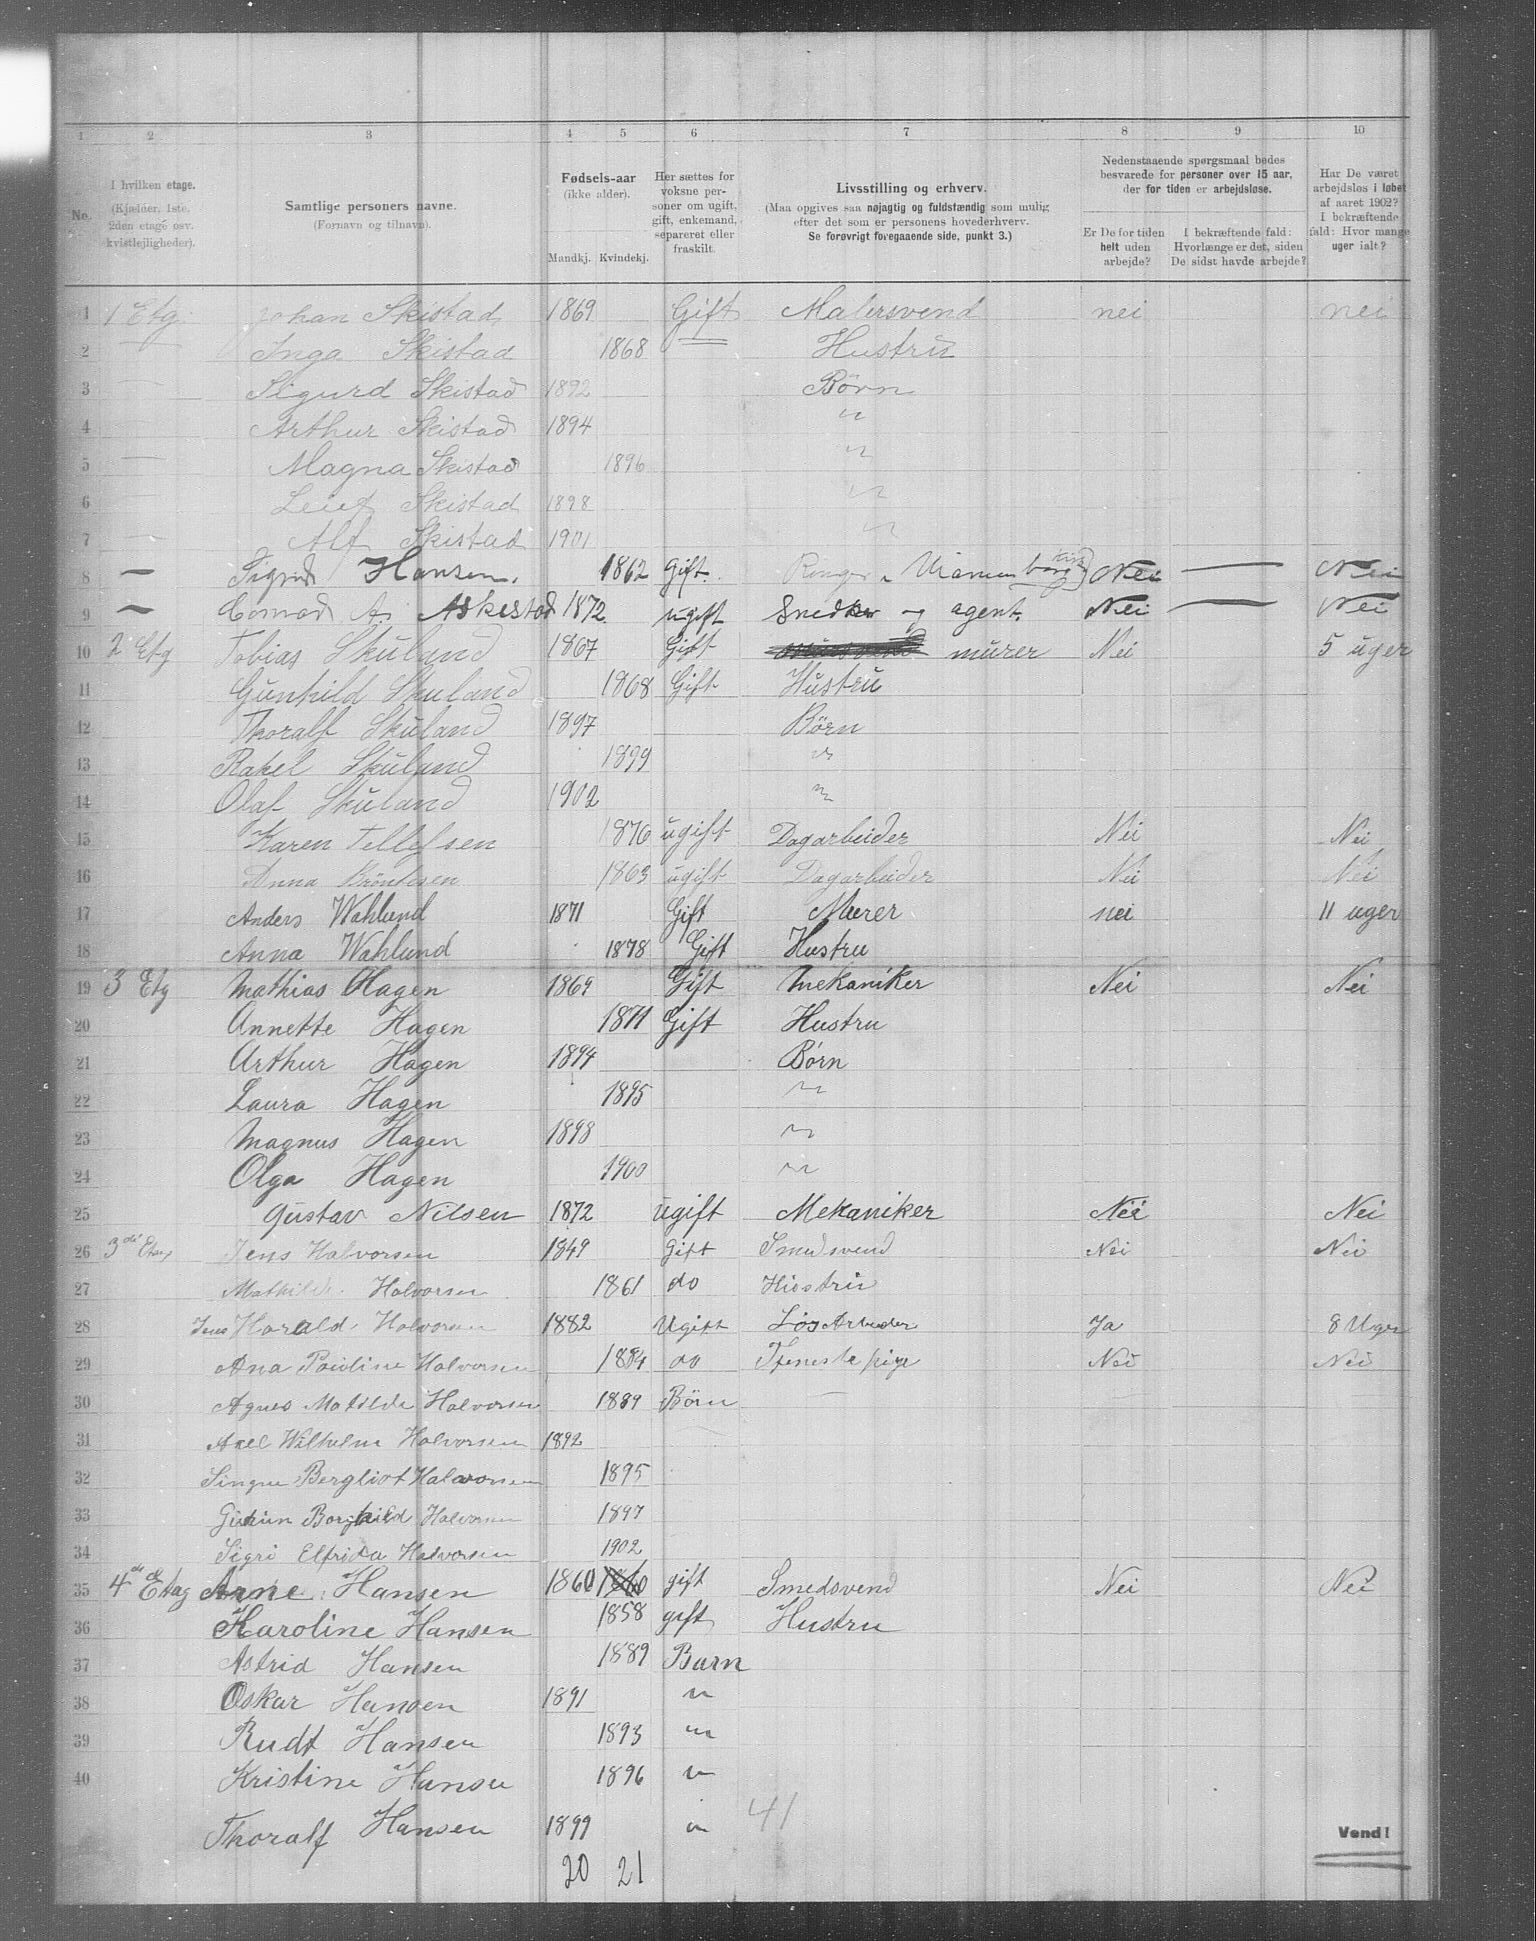 1 2 3 4 5 6 7 8 9 10
No. I hvilken etage. (Kjælder, 1ste, 2den etage osv. kvistlejligheder). Samtlige personers navne. (Fornavn og tilnavn). Fødsels-aar (ikke alder). Mandkj. Kvindekj. Her sættes for voksne personer om ugift, gift, enkemand, separeret eller fraskilt. Livsstilling og erhverv. (Maa opgives saa nøjagtig og fuldstændig som mulig efter det som er personens hovederhverv. Se forøvrigt foregaaende side, punkt 3.) Nedenstaaende spørgsmaal bedes besvarede for personer over 15 aar, der for tiden er arbejdsløse. Er De for tiden helt uden arbejde? I bekræftende fald: Hvorlænge er det, siden De sidst havde arbejde? Har De været arbejdsløs i løbet af aaret 1902? I bekræftende fald: Hvor mange uger ialt?
1 1 Etg. Johan Skistad 1869 Gift Malersvend nei nei
2 — Inga Skistad 1868 — Hustru
3 — Sigurd Skistad 1892 Børn
4 — Arthur Skistad 1894 "
5 — Magna Skistad 1896 "
6 — Leief Skistad 1898 "
7 Alf Skistad 1901 "
8 — Sigrid Hansen. 1862 Gift. Nei — Nei
9 — Conrad A. Askestad 1872 ugift Snedker og agent. Nei — Nei
10 2 Etg Tobias Skuland 1867 Gift murer Nei 5 uger
11 Gunhild Skuland 1868 Gift Hustru
12 Thoralf Skuland 1897 Børn
13 Rakel Skuland 1899 "
14 Olaf Skuland 1902 "
15 Karen Tellefsen 1876 ugift Dagarbeider Nei Nei
16 Anna 1863 ugift Dagarbeider Nei Nei
17 Anders Wahlund 1871 Gift Murer nei 11 uger
18 Anna Wahlund 1878 Gift Hustru
19 3 Etg Mathias Hagen 1869 Gift Mekaniker Nei Nei
20 Annette Hagen 1871 Gift Hustru
21 Arthur Hagen 1894 Børn
22 Laura Hagen 1895 "
23 Magnus Hagen 1898 "
24 Olga Hagen 1900 "
25 Gustav Nilsen 1872 ugift Mekaniker Nei Nei
26 3die Etag Jens Halvorsen 1849 Gift Smedsvend Nei Nei
27 Mathilde Halvorsen 1861 do Hustru
28 Jens Harald Halvorsen 1882 Ugift Løs Arbeider Ja 8 Uger
29 Ana Pouline Halvorsen 1884 do Tjeneste pige Nei Nei
30 Agnes Matilde Halvorsen 1889 Børn —
31 Axel Wilhelm Halvorsen 1892
32 Singne Bergliot Halvorsen 1895
33 Gudrun Borghild Halvorsen 1897
34 Sigri Elfrida Halvorsen 1902
35 4de Etag Arne Hansen 1860 1860 gift Smedsvend Nei Nei
36 Karoline Hansen 1858 gift Hustru
37 Astrid Hansen 1889 Barn
38 Oskar Hansen 1891 "
39 Rudt Hansen 1893 "
40 Kristine Hansen 1896 "
Thoralf Hansen 1899 " 41
Vend!
20 21